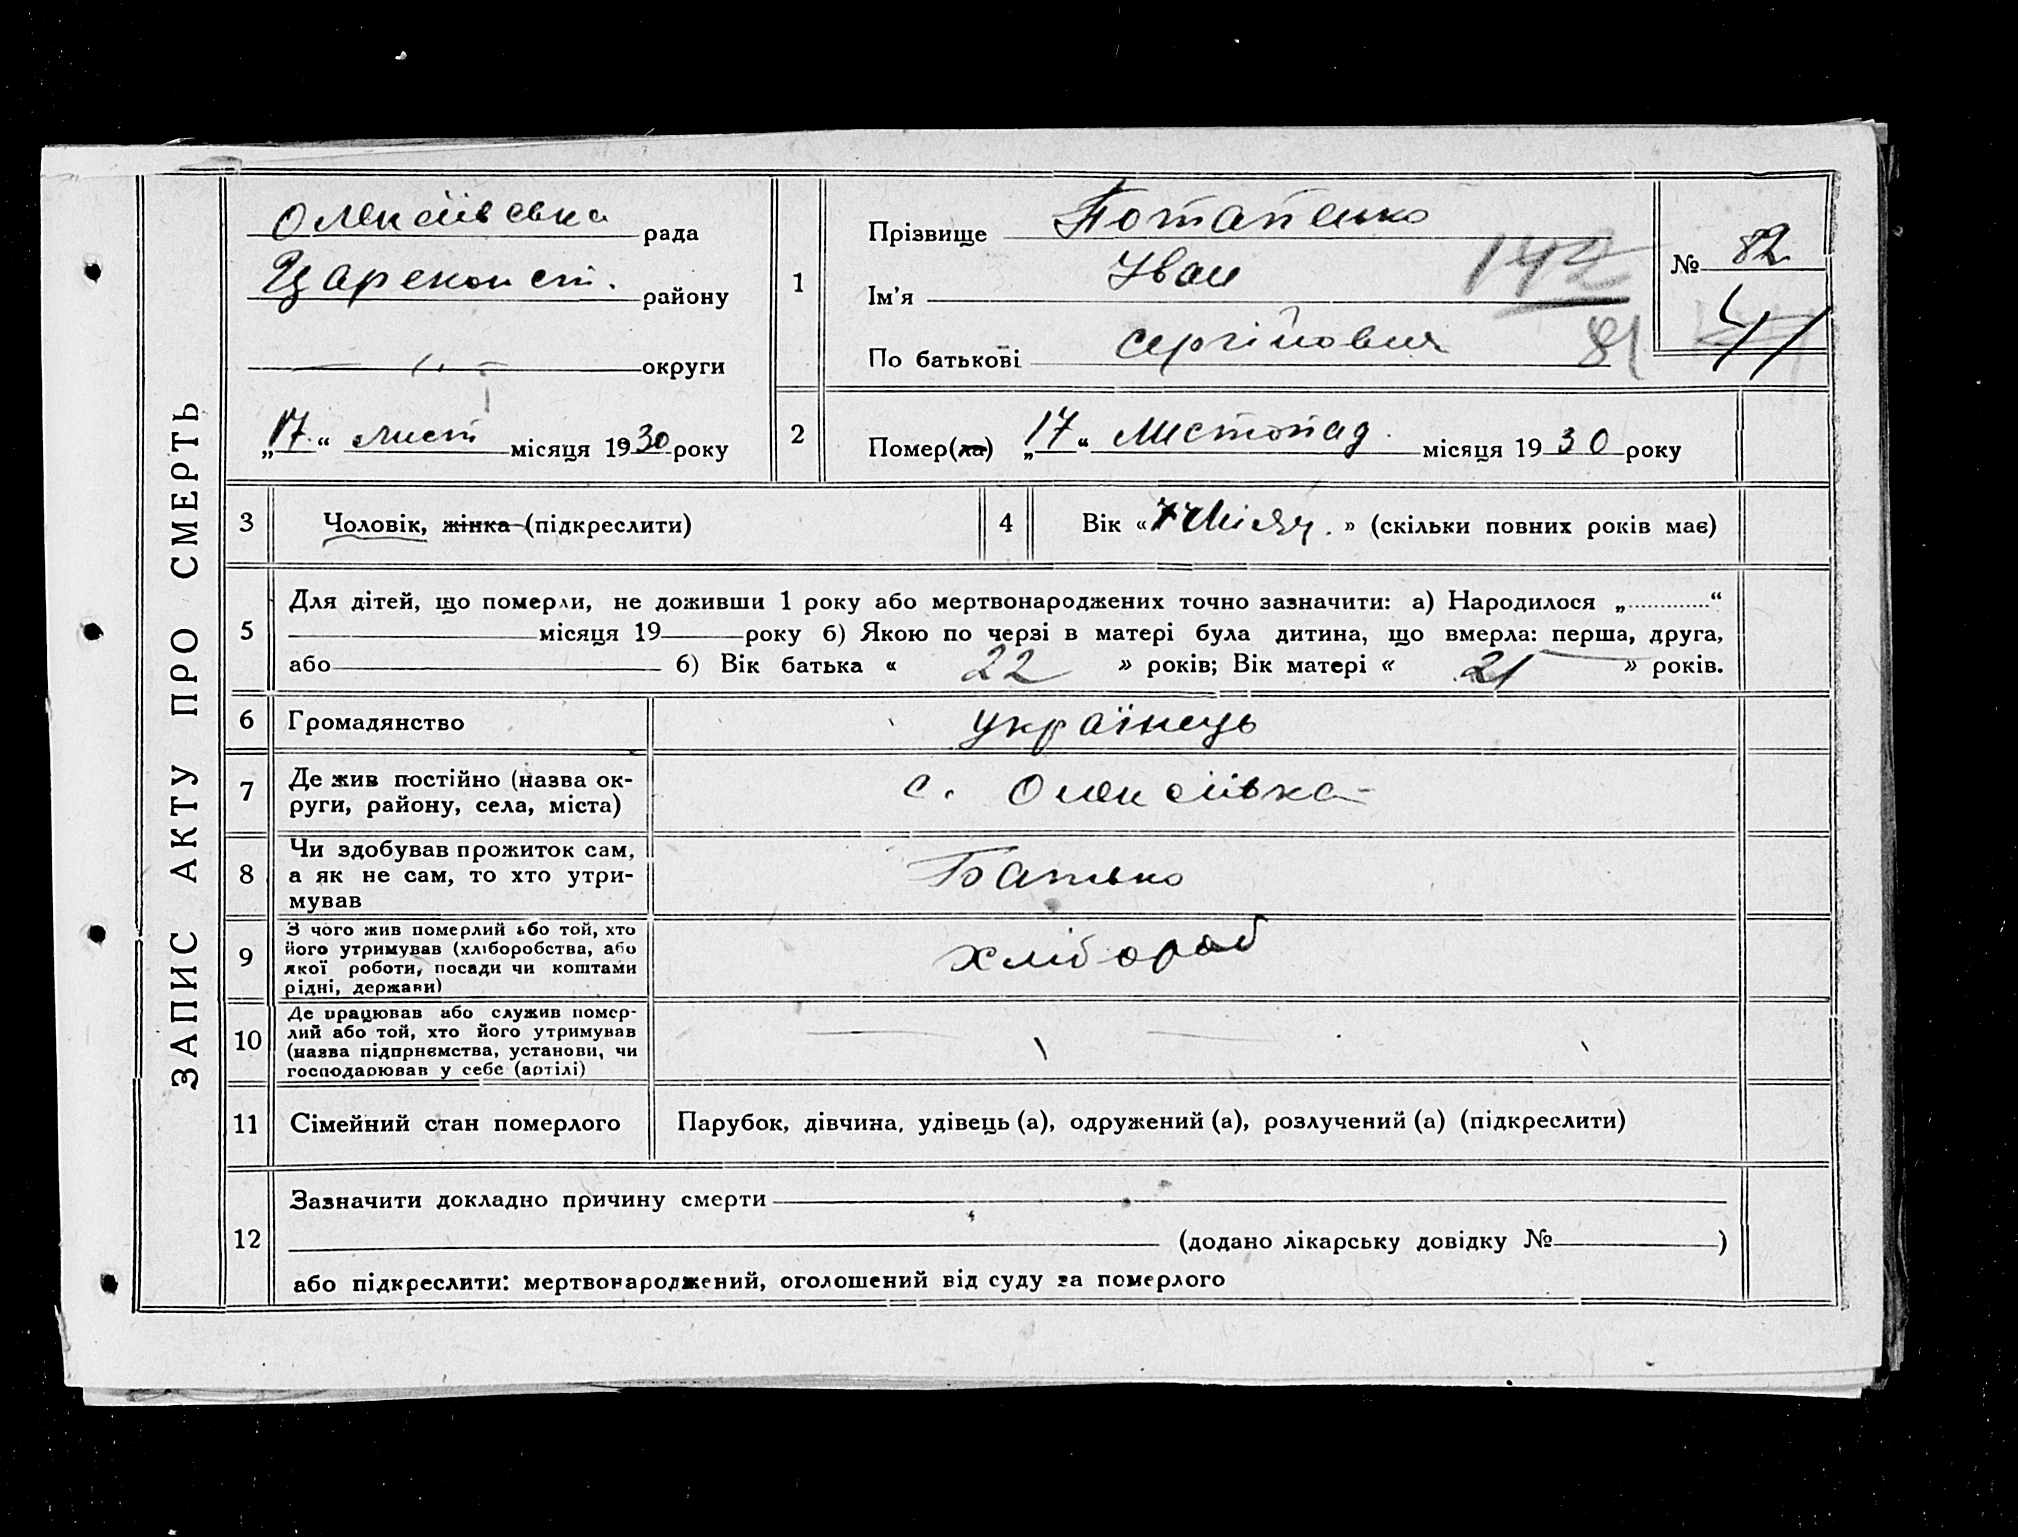 ЗАПИС АКТУ ПРО СМЕРТЬ
Олексіївська рада
Цареконст. району
округи
„17.“ лист місяця 1930 року
1
Прізвище Потапенко
Ім'я Іван
По батькові Сергійович
142
81
№ 82
41
2
Помер(ла) „17“ Листопад. місяця 1930 року
3
Чоловік, жінка (підкреслити)
4
Вік « місяц. » (скільки повних років має)
5
Для дітей, що померли, не доживши 1 року або мертвонароджених точно зазначити: а) Народилося „ “
місяця 19 року б) Якою по черзі в матері була дитина, що вмерла: перша, друга,
або б) Вік батька « 22 » років; Вік матері « 21 » років.
6
Громадянство
українець
7
Де жив постійно (назва ок-
руги, району, села, міста)
с. Олексіївка
8
Чи здобував прожиток сам,
а як не сам, то хто утри-
мував
Батько
9
З чого жив померлий або той, хто
його утримував (хліборобства, або
якої роботи, посади чи коштами
рідні, держави)
хлібороб
10
Де працював або служив помер-
лий або той, хто його утримував
(назва підприємства, установи, чи
господарював у себе (артілі)
11
Сімейний стан померлого
Парубок, дівчина, удівець (а), одружений (а), розлучений (а) (підкреслити)
12
Зазначити докладно причину смерти
(додано лікарську довідку № )
або підкреслити: мертвонароджений, оголошений від суду за померлого